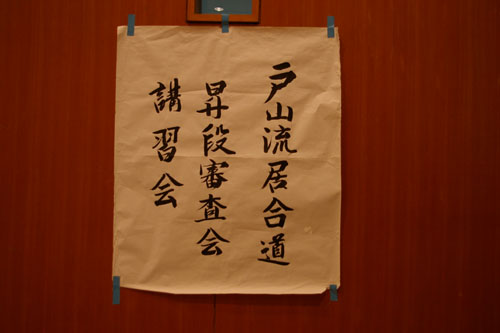 戸山流居合道
昇段審査会
講習会